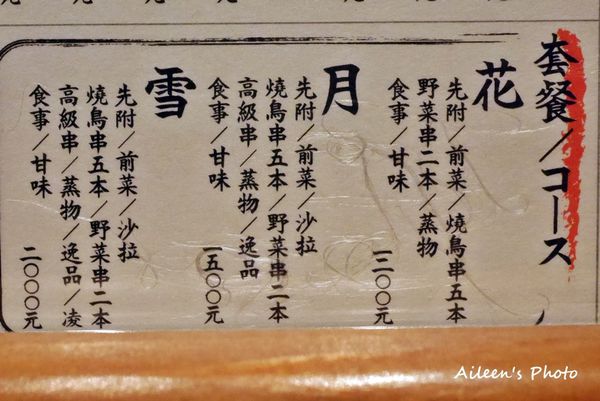 套餐/コース
花
先附/前菜/燒鳥串五本
野菜串二本/蒸物
食事/甘味
一三〇〇元
月
先附/前菜/沙拉
燒鳥串五本/野菜串二本
高級串/蒸物/逸品
食事/甘味
一五〇〇元
雪
先附/前菜/沙拉
燒鳥串五本/野菜串二本
高級串/蒸物/逸品/凌
食事/甘味
二〇〇〇元
Aileen's Photo